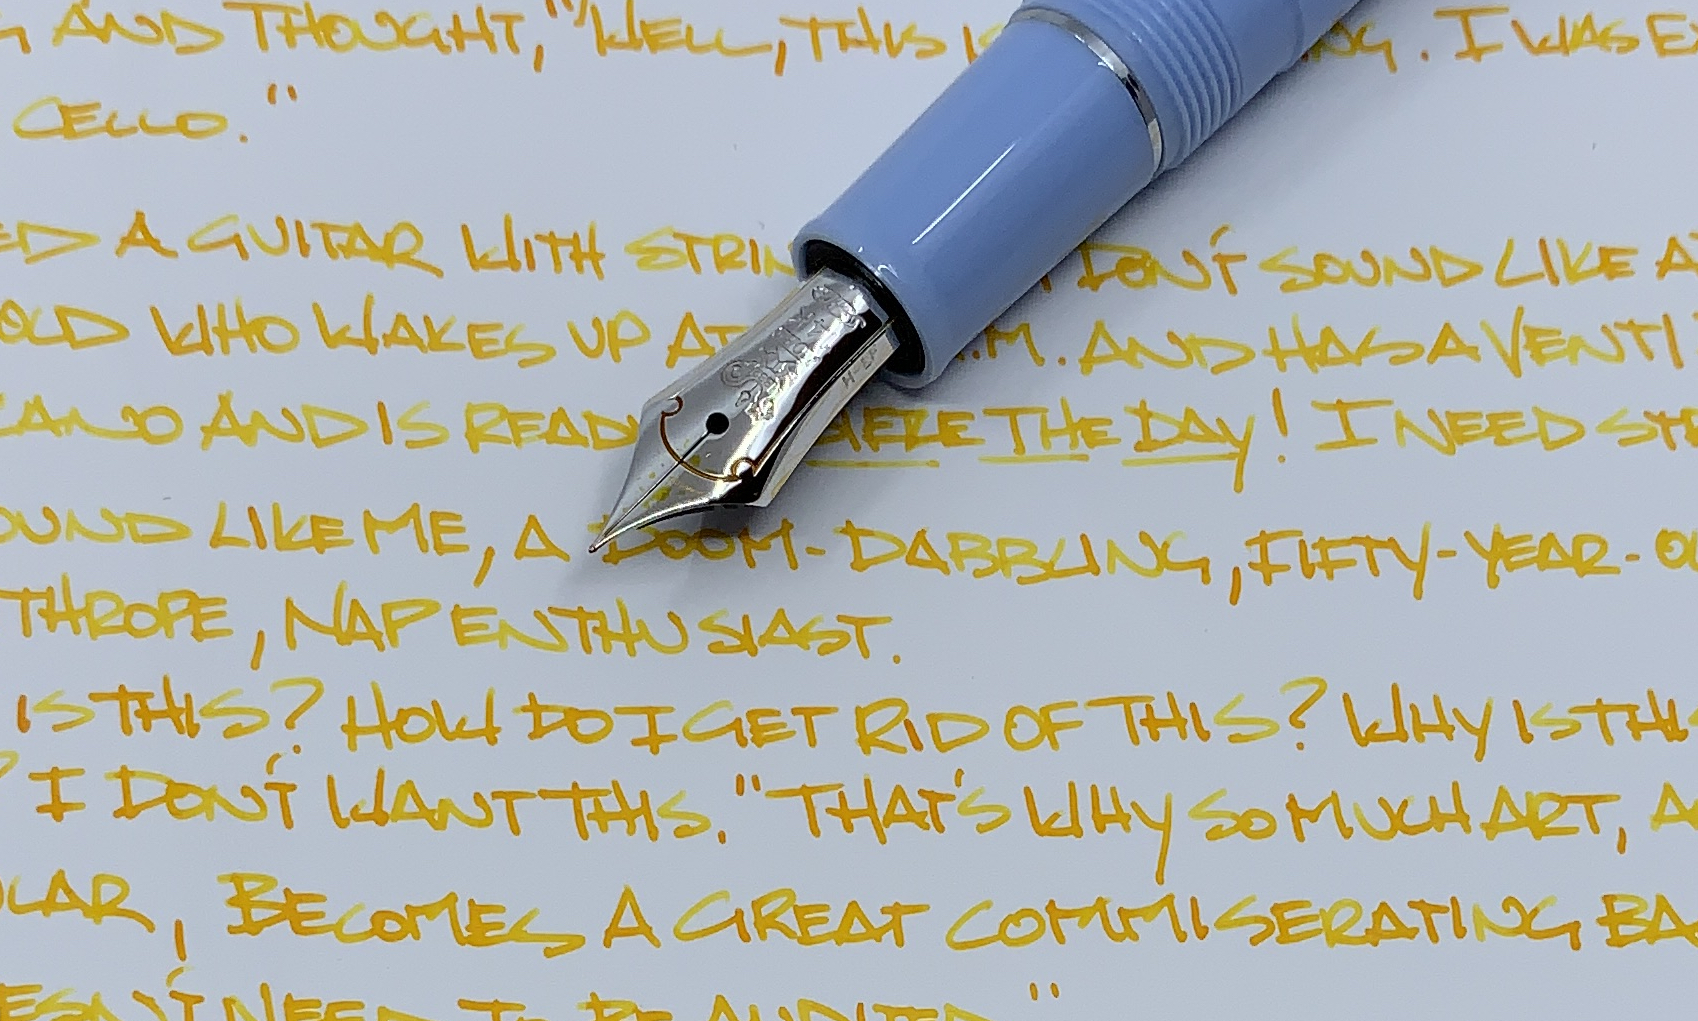 AND THOUGHT, "WELL, THIS I NG. I WAS EX
CELLO."
ED A GUITAR WITH STRIN DON'T SOUND LIKE A
OLD WHO WAKES UP AT .M. AND HAS A VENTI
CANO AND IS READY THE DAY! I NEED STR
OUND LIKE ME, A DOOM-DABBLING, FIFTY-YEAR-OL
THROPE, NAP ENTHUSIAST.
IS THIS? HOW DO I GET RID OF THIS? WHY IS THIS
? I DON'T WANT THIS." THAT'S WHY SO MUCH ART,
LAR, BECOMES A GREAT COMMISERATING BA
ESN'T NEED TO BE AUDITED."